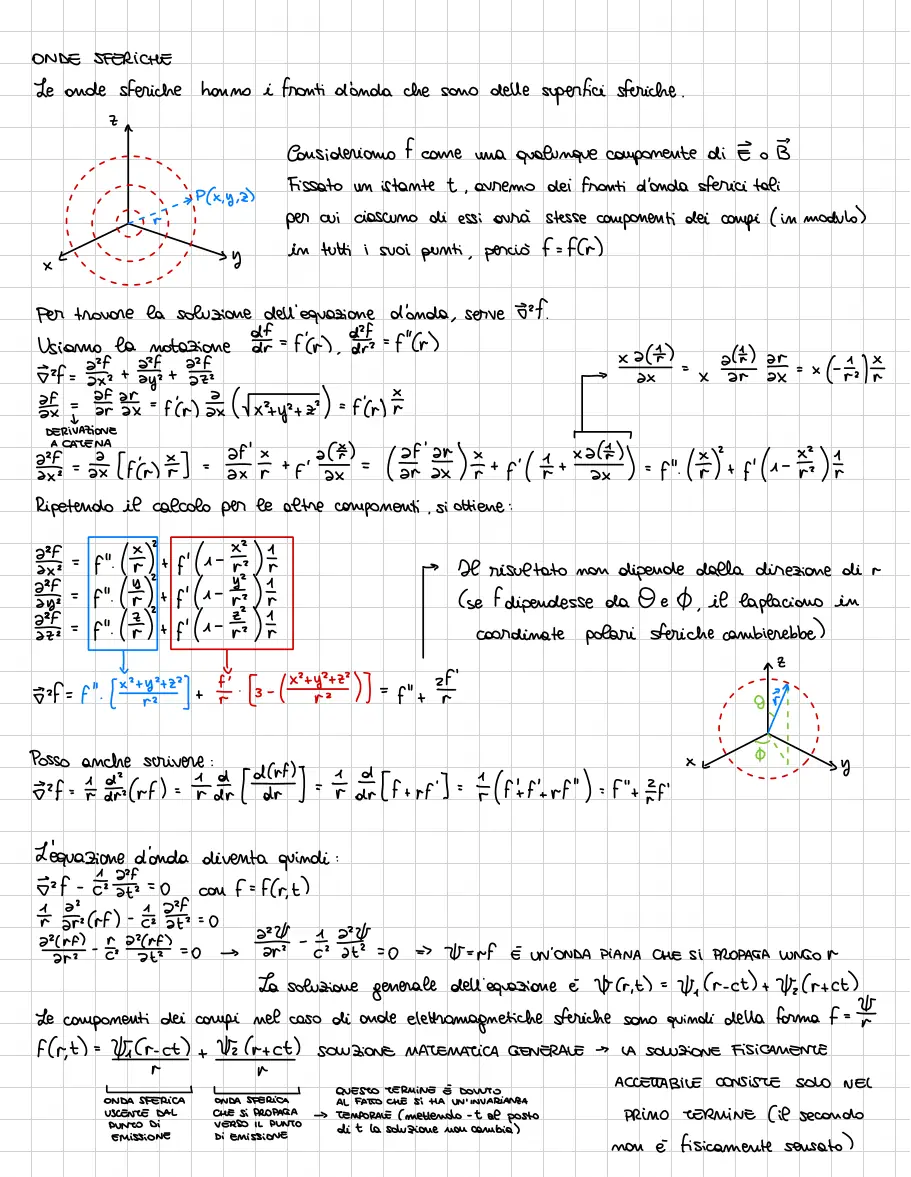 ONDE SFERICHE
Le onde sferiche hanno i fronti d'onda che sono delle superfici sferiche.
z
P(x,y,z)
r
x
y
Consideriamo f come una qualunque componente di E⃗ o B⃗
Fissato un istante t, avremo dei fronti d'onda sferici tali
per cui ciascuno di essi avrà stesse componenti dei campi (in modulo)
in tutti i suoi punti, perciò f=f(r)
Per trovare la soluzione dell'equazione d'onda, serve ∇⃗²f.
Usiamo la notazione df/dr = f'(r), d²f/dr² = f''(r)
∇⃗²f = ∂²f/∂x² + ∂²f/∂y² + ∂²f/∂z²
x∂(1/r)/∂x = x ∂(1/r)/∂r ∂r/∂x = x(-1/r²) x/r
∂f/∂x = ∂f/∂r ∂r/∂x = f'(r) ∂/∂x (√x²+y²+z²) = f'(r) x/r
DERIVAZIONE
A CATENA
∂²f/∂x² = ∂/∂x [f'(r) x/r] = ∂f'/∂x x/r + f' ∂(x/r)/∂x = (∂f'/∂r ∂r/∂x) x/r + f' (1/r + x∂(1/r)/∂x) = f''·(x/r)² + f' (1 - x²/r²) 1/r
Ripetendo il calcolo per le altre componenti, si ottiene:
∂²f/∂x² = f''·(x/r)² + f'(1 - x²/r²) 1/r
∂²f/∂y² = f''·(y/r)² + f'(1 - y²/r²) 1/r
∂²f/∂z² = f''·(z/r)² + f'(1 - z²/r²) 1/r
→ Il risultato non dipende dalla direzione di r
(se f dipendesse da θ e ϕ, il laplaciano in
coordinate polari sferiche cambierebbe)
∇⃗²f = f''·[x²+y²+z²/r²] + f'/r · [3 - (x²+y²+z²/r²)] = f'' + 2f'/r
z
θ
r⃗
ϕ
x
y
Posso anche scrivere:
∇⃗²f = 1/r d²/dr² (rf) = 1/r d/dr [d(rf)/dr] = 1/r d/dr [f + rf'] = 1/r (f'+f'+rf'') = f'' + 2/r f'
L'equazione d'onda diventa quindi:
∇⃗²f - 1/c² ∂²f/∂t² = 0 con f = f(r,t)
1/r ∂²/∂r² (rf) - 1/c² ∂²f/∂t² = 0
∂²(rf)/∂r² - r/c² ∂²(rf)/∂t² = 0 → ∂²ψ/∂r² - 1/c² ∂²ψ/∂t² = 0 => ψ=rf È UN'ONDA PIANA CHE SI PROPAGA LUNGO r
La soluzione generale dell'equazione è ψ(r,t) = ψ₁(r-ct) + ψ₂(r+ct)
Le componenti dei campi nel caso di onde elettromagnetiche sferiche sono quindi della forma f = ψ/r
f(r,t) = ψ₁(r-ct)/r + ψ₂(r+ct)/r SOLUZIONE MATEMATICA GENERALE → LA SOLUZIONE FISICAMENTE
ACCETTABILE CONSISTE SOLO NEL
PRIMO TERMINE (il secondo
non è fisicamente sensato)
ONDA SFERICA
USCENTE DAL
PUNTO DI
EMISSIONE
ONDA SFERICA
CHE SI PROPAGA
VERSO IL PUNTO
DI EMISSIONE
QUESTO TERMINE È DOVUTO
AL FATTO CHE SI HA UN'INVARIANZA
→ TEMPORALE (mettendo -t al posto
di t la soluzione non cambia)